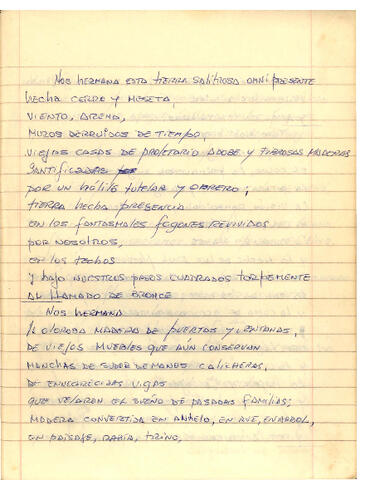 Nos hermana esta tierra salitrosa omnipresente
hecha cerro y meseta,
viento, arena,
muros derruidos de tiempo,
viejas casas de proletario adobe y tiñosas maderas
santificadas
por un hálito tutelar y obrero;
tierra hecha presencia
en los fantasmales fogones revividos
por nosotros,
en los techos
y bajo nuestros pasos cuadrados torpemente
al llamado de bronce
Nos hermana
la olorosa madera de puertas y ventanas,
de viejos muebles que aún conservan
manchas de sudor de manos calicheras,
de ennegrecidas vigas
que velaron el sueño de pasadas familias;
madera convertida en anhelo, en ave, en árbol,
en paisaje, bahía, trino,